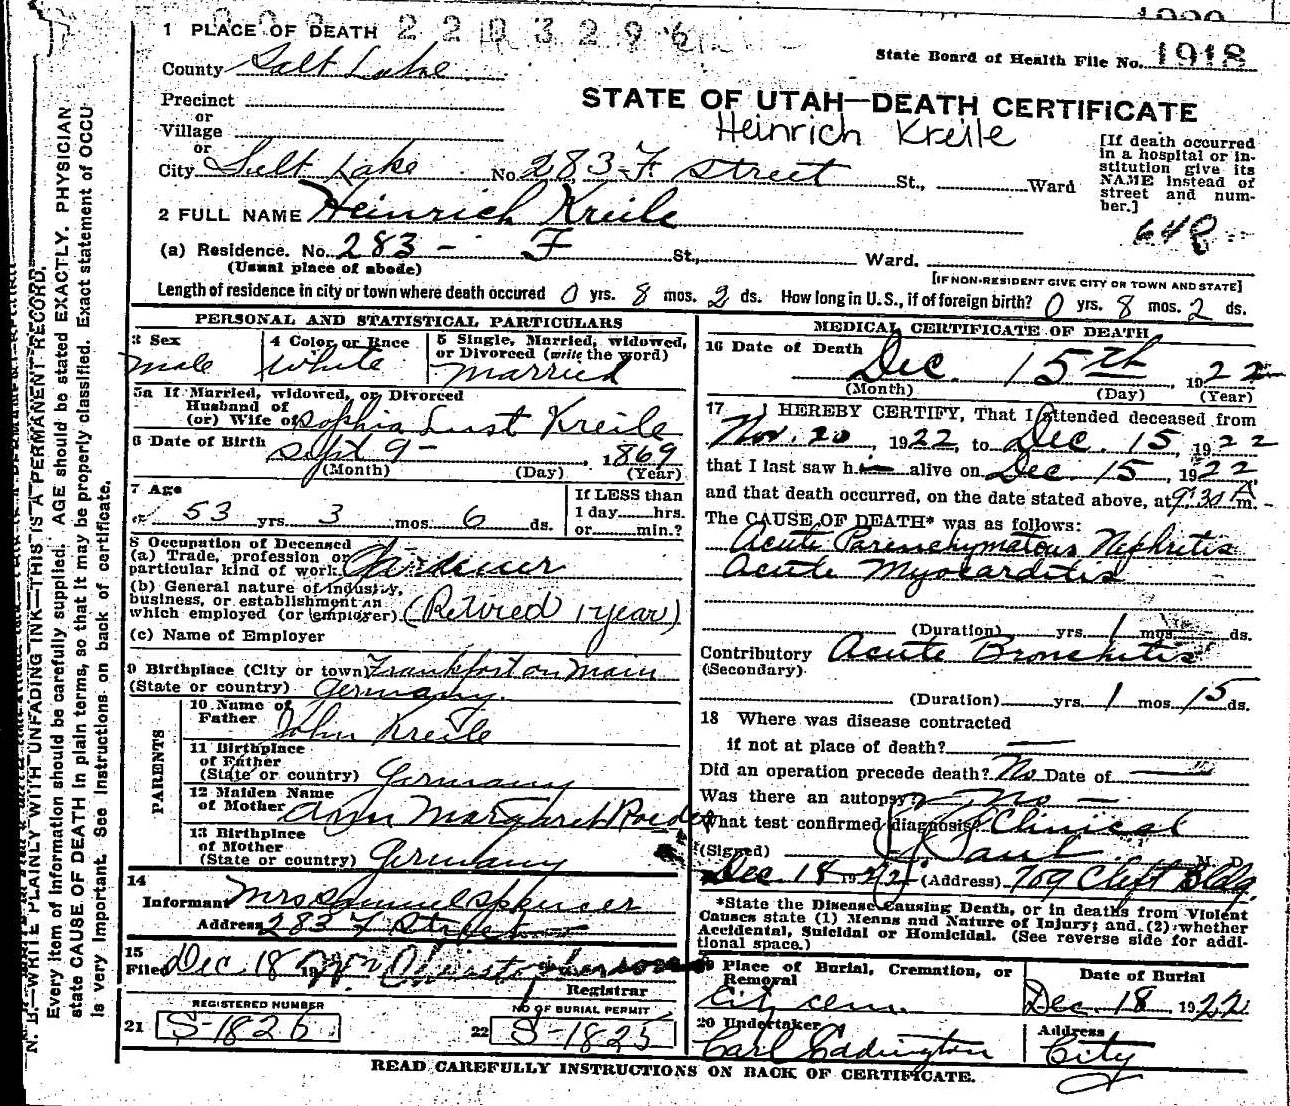 1 PLACE OF DEATH 2203296
County Salt Lake
State Board of Health File No. 1918
Precinct
or
Village
or
STATE OF UTAH—DEATH CERTIFICATE
Heinrich Kreile
City Salt Lake No. 283 F Street St., Ward
[If death occurred in a hospital or institution give its NAME instead of street and number.]
2 FULL NAME Heinrich Kreile
648
(a) Residence. No. 283 - F St., Ward.
(Usual place of abode)
[IF NON-RESIDENT GIVE CITY OR TOWN AND STATE]
Length of residence in city or town where death occured 0 yrs. 8 mos. 2 ds. How long in U.S., if of foreign birth? 0 yrs. 8 mos. 2 ds.
PERSONAL AND STATISTICAL PARTICULARS
3 Sex
male
4 Color or Race
White
5 Single, Married, widowed,
or Divorced (write the word)
Married
5a If Married, widowed, or Divorced
Husband of
(or) Wife of Sophia Lust Kreile
6 Date of Birth Sept 9 - 1869
(Month) (Day) (Year)
7 Age
53 yrs. 3 mos. 6 ds.
If LESS than
1 day hrs.
or min.?
8 Occupation of Deceased
(a) Trade, profession or
particular kind of work Gardener
(b) General nature of industry,
business, or establishment in
which employed (or employer) (Retired 1 year)
(c) Name of Employer
9 Birthplace (City or town) Frankfort on Main
(State or country) Germany.
PARENTS
10 Name of
Father John Kreile
11 Birthplace
of Father
(State or country) Germany
12 Maiden Name
of Mother Ann Margaret Roeder
13 Birthplace
of Mother
(State or country) Germany
14
Informant Mrs Samuel Spencer
Address 283 F Street
15
Filed Dec 18 1922
Registrar
REGISTERED NUMBER
21 S-1826
NO OF BURIAL PERMIT
22 S-1825
MEDICAL CERTIFICATE OF DEATH
16 Date of Death
Dec. 15th, 1922
(Month) (Day) (Year)
17 I HEREBY CERTIFY, That I attended deceased from
Nov. 20, 1922, to Dec. 15, 1922
that I last saw him alive on Dec. 15, 1922
and that death occurred, on the date stated above, at 9:30 A m.
The CAUSE OF DEATH* was as follows:
Acute Parenchymatous Nephritis
Acute Myocarditis
(Duration) yrs. 1 mos. ds.
Contributory Acute Bronchitis
(Secondary)
(Duration) yrs. 1 mos. 15 ds.
18 Where was disease contracted
if not at place of death? —
Did an operation precede death? No Date of —
Was there an autopsy? No —
What test confirmed diagnosis? Clinical
(Signed) Paul M. D.
Dec 18 1922 (Address) 709 Clift Bldg.
*State the Disease Causing Death, or in deaths from Violent
Causes state (1) Menns and Nature of Injury; and (2) whether
Accidental, Suicidal or Homicidal. (See reverse side for addi-
tional space.)
19 Place of Burial, Cremation, or
Removal
City cem.
Date of Burial
Dec. 18 1922
20 Undertaker
Address
City
READ CAREFULLY INSTRUCTIONS ON BACK OF CERTIFICATE.
N. B.—WRITE PLAINLY WITH UNFADING INK—THIS IS A PERMANENT RECORD.
Every item of information should be carefully supplied. AGE should be stated EXACTLY. PHYSICIAN
state CAUSE OF DEATH in plain terms, so that it may be properly classified. Exact statement of OCCU
is very important. See instructions on back of certificate.